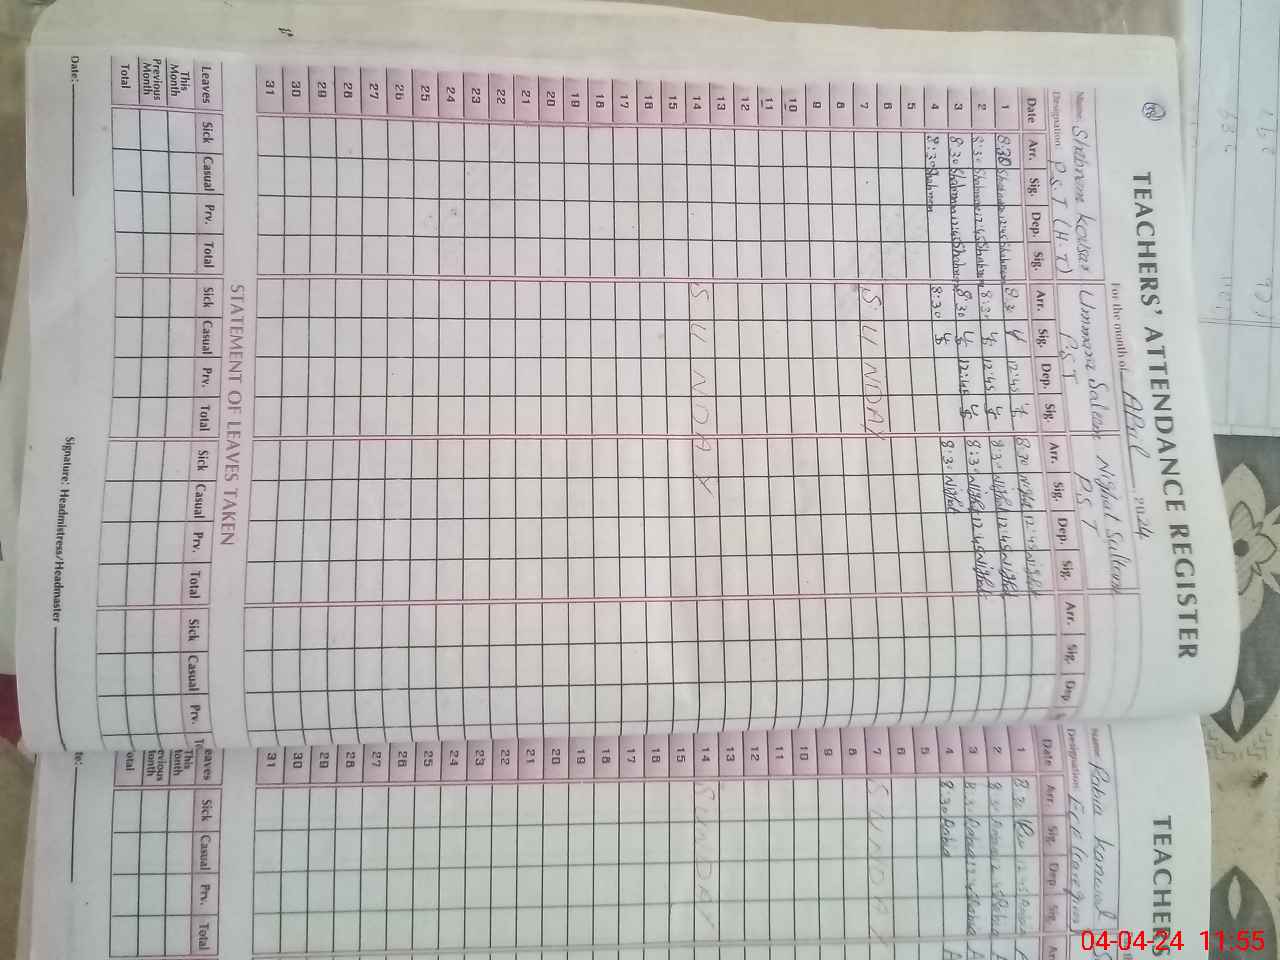 TEACHERS' ATTENDANCE REGISTER
For the month of April 2024
Name: Shabnam Kousar Ummara Saleem Nighat Sultana
Designation: P.S.T (H.T) P.S.T P.S.T
Date Arr. Sig. Dep. Sig. Arr. Sig. Dep. Sig. Arr. Sig. Dep. Sig. Arr. Sig. Dep.
1 8:30 12:45 8:30 12:45 8:30 Nighat 12:45 Nighat
2 8:30 Shabnam 12:45 Shabnam 8:30 12:45 8:30 Nighat 12:45 Nighat
3 8:30 Shabnam 12:45 Shabnam 8:30 12:45 8:30 Nighat 12:45 Nighat
4 8:30 Shabnam 8:30 8:30 Nighat
5
6
7 SUNDAY
8
9
10
11
12
13
14 SUNDAY
15
16
17
18
19
20
21
22
23
24
25
26
27
28
29
30
31
STATEMENT OF LEAVES TAKEN
Leaves Sick Casual Prv. Total Sick Casual Prv. Total Sick Casual Prv. Total Sick Casual Prv.
This Month
Previous Month
Total
Date: Signature: Headmistress/Headmaster
TEACHERS
Name: Rabia Kanwal
Designation:
Date Arr. Sig. Dep. Sig. Arr.
1 8:30 12:45
2 8:30 Rabia 12:45 Rabia
3 8:30 Rabia 12:45 Rabia
4 8:30 Rabia
5
6
7 SUNDAY
8
9
10
11
12
13
14 SUNDAY
15
16
17
18
19
20
21
22
23
24
25
26
27
28
29
30
31
Leaves Sick Casual Prv. Total
04-04-24 11:55